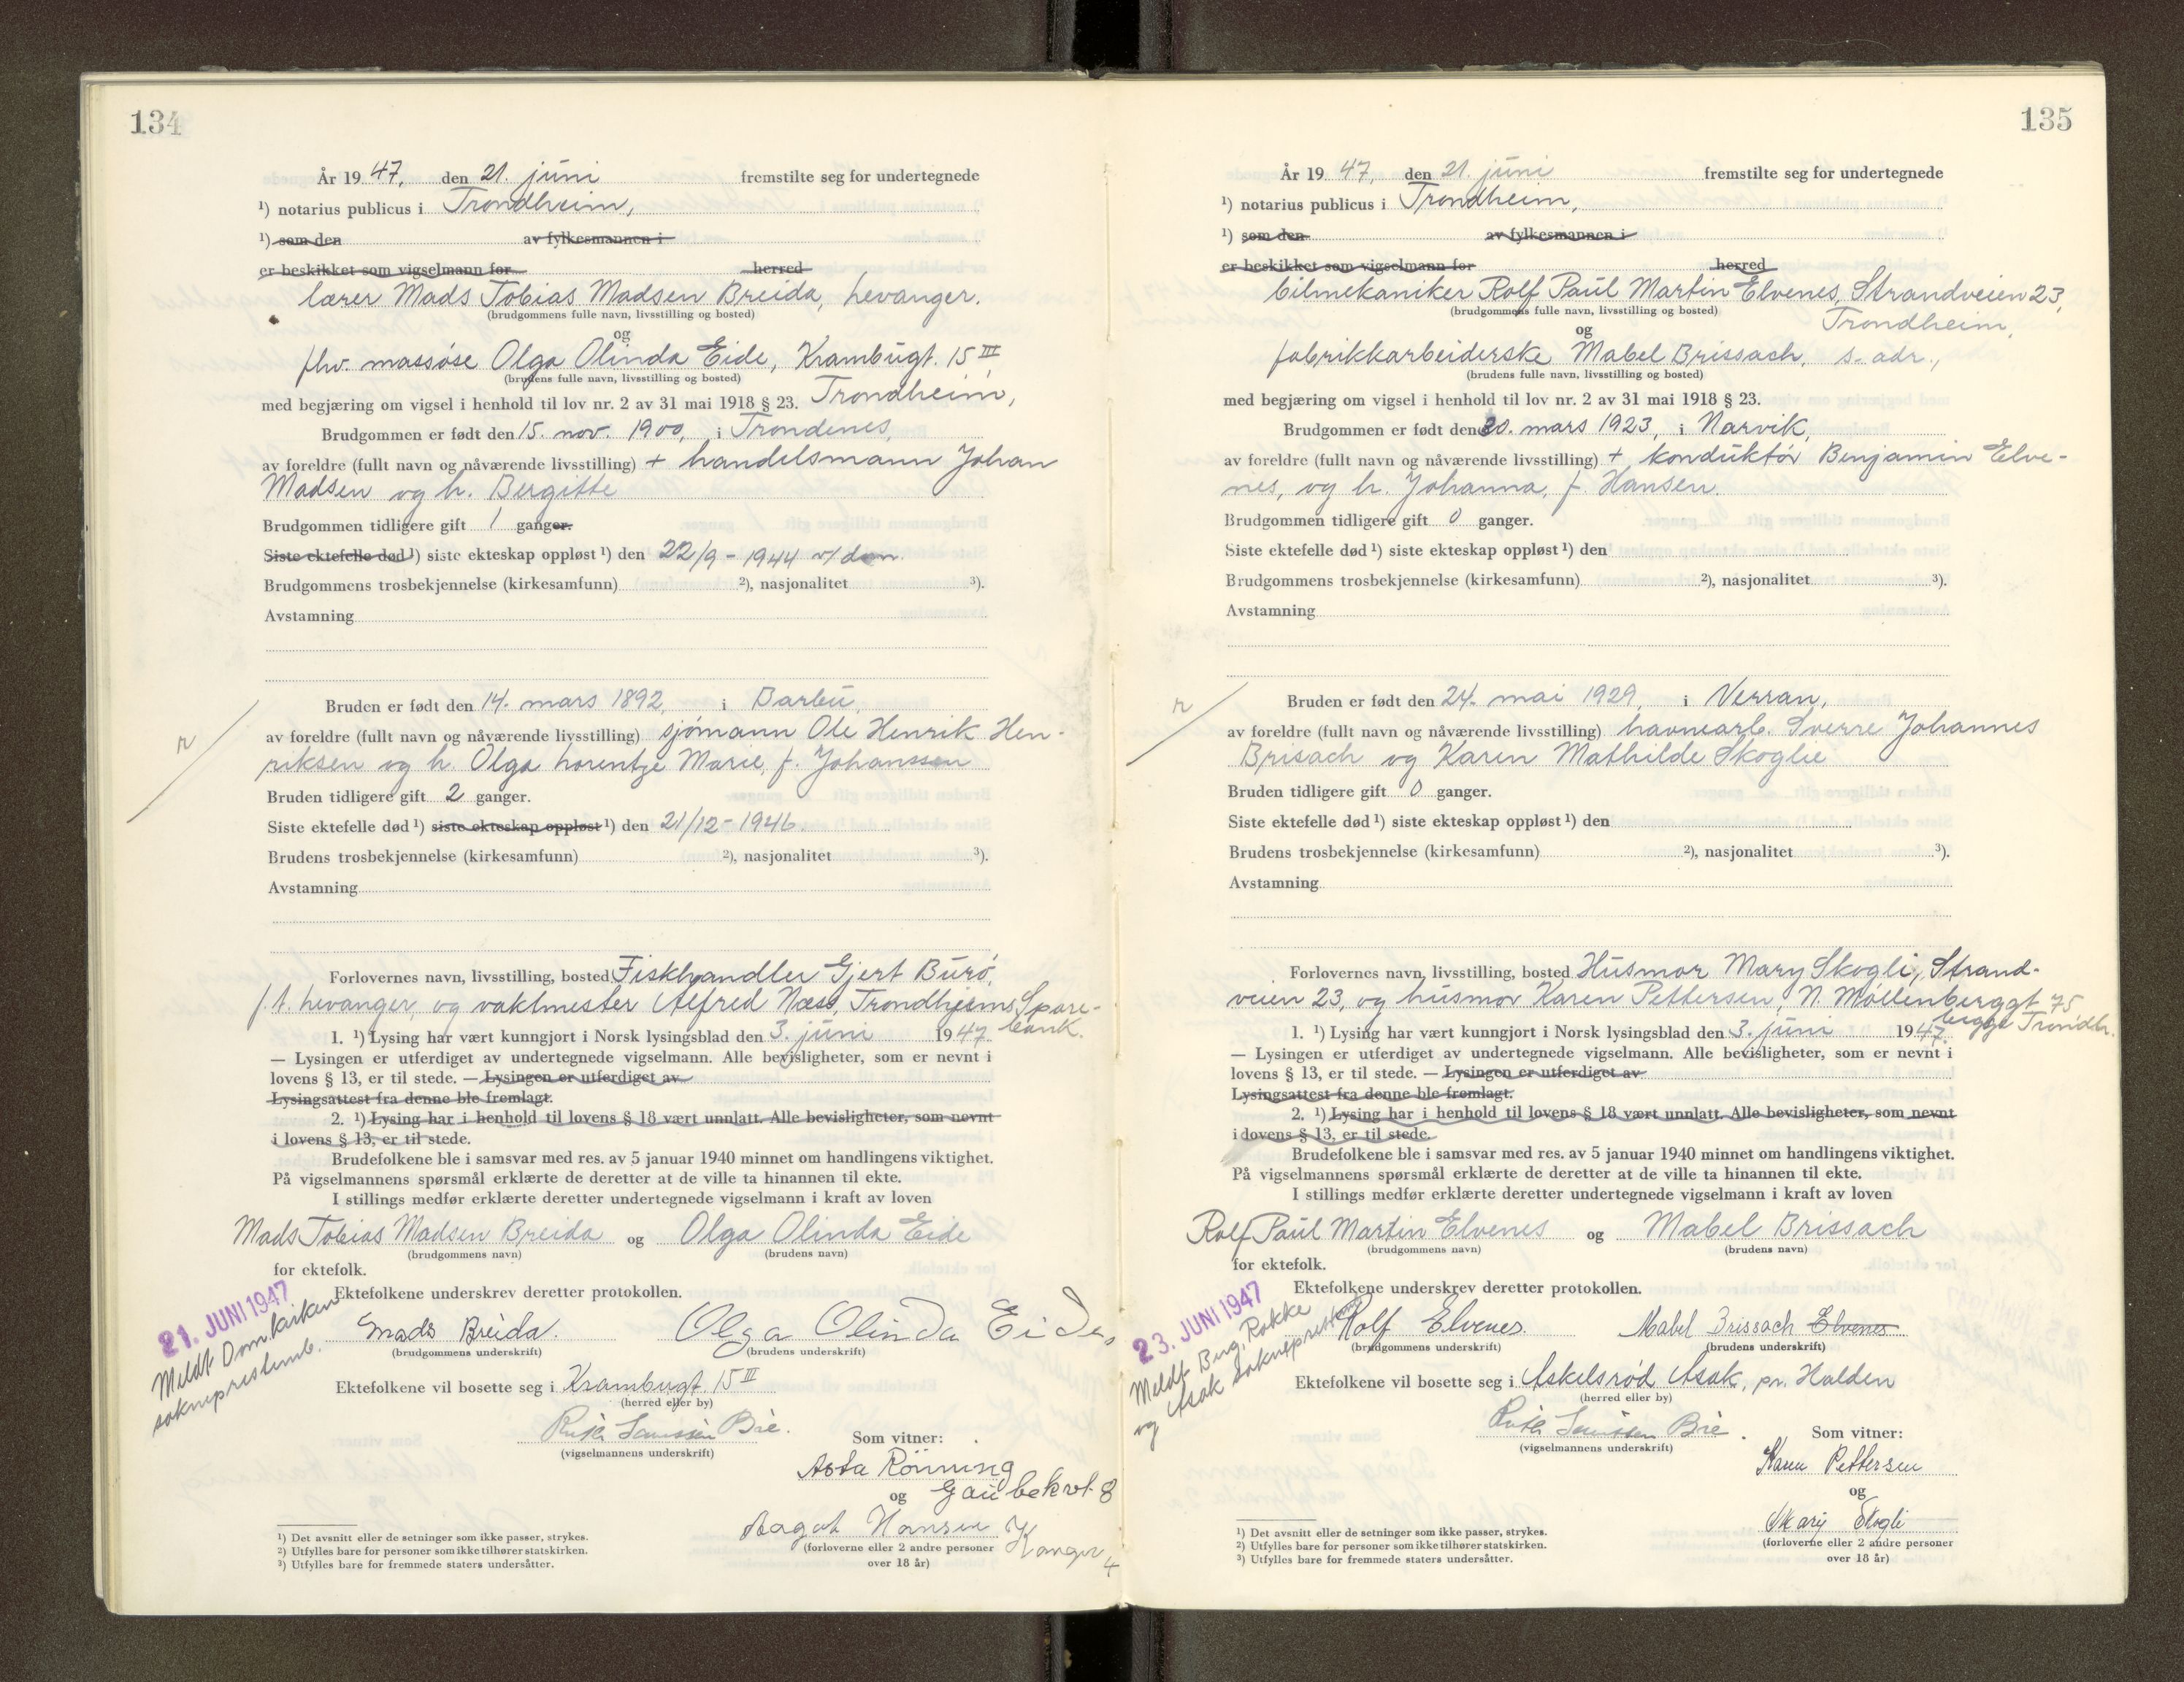 134
År 19 47, den 21. juni fremstilte seg for undertegnede
¹) notarius publicus i Trondheim,
¹) som den av fylkesmannen i
er beskikket som vigselmann for herred
lærer Mads Tobias Madsen Breida, Levanger.
(brudgommens fulle navn, livsstilling og bosted)
og
fhv. massøse Olga Olinda Eide, Krambugt. 15 III,
(brudens fulle navn, livsstilling og bosted)
med begjæring om vigsel i henhold til lov nr. 2 av 31 mai 1918 § 23. Trondheim,
Brudgommen er født den 15. nov. 1900, i Trondenes,
av foreldre (fullt navn og nåværende livsstilling) + handelsmann Johan
Madsen og h. Bergitte
Brudgommen tidligere gift 1 ganger.
Siste ektefelle død ¹) siste ekteskap oppløst ¹) den 22/9 - 1944 v/dom.
Brudgommens trosbekjennelse (kirkesamfunn) ²), nasjonalitet ³).
Avstamning
Bruden er født den 14. mars 1892, i Barbu,
av foreldre (fullt navn og nåværende livsstilling) sjømann Ole Henrik Hen-
riksen og h. Olga Lorentze Marie, f. Johanssen
r
Bruden tidligere gift 2 ganger.
Siste ektefelle død ¹) siste ekteskap oppløst ¹) den 21/12 - 1946.
Brudens trosbekjennelse (kirkesamfunn) ²), nasjonalitet ³).
Avstamning
Forlovernes navn, livsstilling, bosted Fiskhandler Gjert Burø,
f.t. Levanger, og vaktmester Alfred Næss, Trondhjems Spare-
bank.
1. ¹) Lysing har vært kunngjort i Norsk lysingsblad den 3. juni 1947
— Lysingen er utferdiget av undertegnede vigselmann. Alle bevisligheter, som er nevnt i
lovens § 13, er til stede. — Lysingen er utferdiget av
Lysingsattest fra denne ble fremlagt.
2. ¹) Lysing har i henhold til lovens § 18 vært unnlatt. Alle bevisligheter, som nevnt
i lovens § 13, er til stede.
Brudefolkene ble i samsvar med res. av 5 januar 1940 minnet om handlingens viktighet.
På vigselmannens spørsmål erklærte de deretter at de ville ta hinannen til ekte.
I stillings medfør erklærte deretter undertegnede vigselmann i kraft av loven
Mads Tobias Madsen Breida og Olga Olinda Eide
(brudgommens navn) (brudens navn)
for ektefolk.
Ektefolkene underskrev deretter protokollen.
21. JUNI 1947
Meldt Domkirken
sokneprestemb.
Mads Breida. Olga Olinda Eide,
(brudgommens underskrift) (brudens underskrift)
Ektefolkene vil bosette seg i Krambugt. 15 III
(herred eller by)
(vigselmannens underskrift)
Som vitner:
Asta Rönning
og Gaubekvt. 8
Aagot Hansen
(forloverne eller 2 andre personer
over 18 år)
¹) Det avsnitt eller de setninger som ikke passer, strykes.
²) Utfylles bare for personer som ikke tilhører statskirken.
³) Utfylles bare for fremmede staters undersåtter.
135
År 19 47, den 21. juni fremstilte seg for undertegnede
¹) notarius publicus i Trondheim,
¹) som den av fylkesmannen i
er beskikket som vigselmann for herred
bilmekaniker Rolf Paul Martin Elvenes, Strandveien 23,
(brudgommens fulle navn, livsstilling og bosted)
Trondheim,
og
fabrikkarbeiderske Mabel Brissach, s. adr.,
(brudens fulle navn, livsstilling og bosted)
med begjæring om vigsel i henhold til lov nr. 2 av 31 mai 1918 § 23.
Brudgommen er født den 30. mars 1923, i Narvik,
av foreldre (fullt navn og nåværende livsstilling) + konduktør Benjamin Elve-
nes, og h. Johanna, f. Hansen.
Brudgommen tidligere gift 0 ganger.
Siste ektefelle død ¹) siste ekteskap oppløst ¹) den
Brudgommens trosbekjennelse (kirkesamfunn) ²), nasjonalitet ³).
Avstamning
r
Bruden er født den 24. mai 1929, i Verran,
av foreldre (fullt navn og nåværende livsstilling) havnearb. Sverre Johannes
Brisach og Karen Mathilde Skoglie
Bruden tidligere gift 0 ganger.
Siste ektefelle død ¹) siste ekteskap oppløst ¹) den
Brudens trosbekjennelse (kirkesamfunn) ²), nasjonalitet ³).
Avstamning
Forlovernes navn, livsstilling, bosted Husmor Mary Skogli, Strand-
veien 23, og husmor Karen Pettersen, N. Møllenberggt 75
begge Trondh.
1. ¹) Lysing har vært kunngjort i Norsk lysingsblad den 3. juni 1947.
— Lysingen er utferdiget av undertegnede vigselmann. Alle bevisligheter, som er nevnt i
lovens § 13, er til stede. — Lysingen er utferdiget av
Lysingsattest fra denne ble fremlagt.
2. ¹) Lysing har i henhold til lovens § 18 vært unnlatt. Alle bevisligheter, som nevnt
i lovens § 13, er til stede.
Brudefolkene ble i samsvar med res. av 5 januar 1940 minnet om handlingens viktighet.
På vigselmannens spørsmål erklærte de deretter at de ville ta hinannen til ekte.
I stillings medfør erklærte deretter undertegnede vigselmann i kraft av loven
Rolf Paul Martin Elvenes og Mabel Brissach
(brudgommens navn) (brudens navn)
for ektefolk.
Ektefolkene underskrev deretter protokollen.
23. JUNI 1947
Meldt Berg, Rokke
og Asak sokneprestemb.
Rolf Elvenes. Mabel Brissach Elvenes
(brudgommens underskrift) (brudens underskrift)
Ektefolkene vil bosette seg i Askelsrød Asak, pr. Halden
(herred eller by)
(vigselmannens underskrift)
Som vitner:
Karen Pettersen
og
Mary Skogli
(forloverne eller 2 andre personer
over 18 år)
¹) Det avsnitt eller de setninger som ikke passer, strykes.
²) Utfylles bare for personer som ikke tilhører statskirken.
³) Utfylles bare for fremmede staters undersåtter.